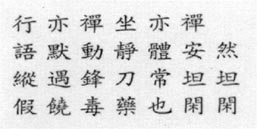 行亦禪坐亦禪
語默動靜體安然
縱遇鋒刀常坦坦
假饒毒藥也閑閑